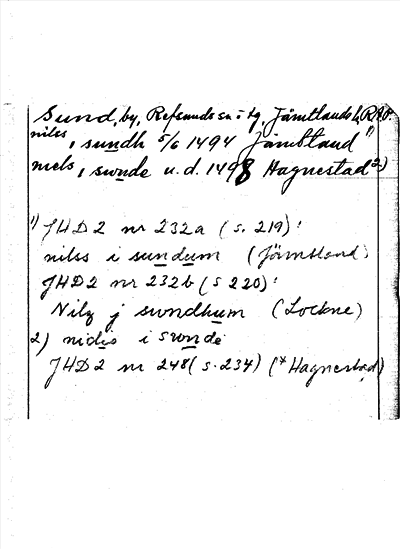 Sund, by, Refsunds sn o tg, Jämtlands l. RAP.
niles, i sundh 5/6 1494 Jämbtland 1)
niels, i swnde u.d. 1498 Hagnestad 2)
1) JHD 2 nr 232a (s. 219):
nilss i sundum (Jämtland)
JHD 2 nr 232b (s 220):
Nilz j swndhum (Lockne)
2) i swnde
JHD 2 nr 248 (s. 234) (* Hagnestad)